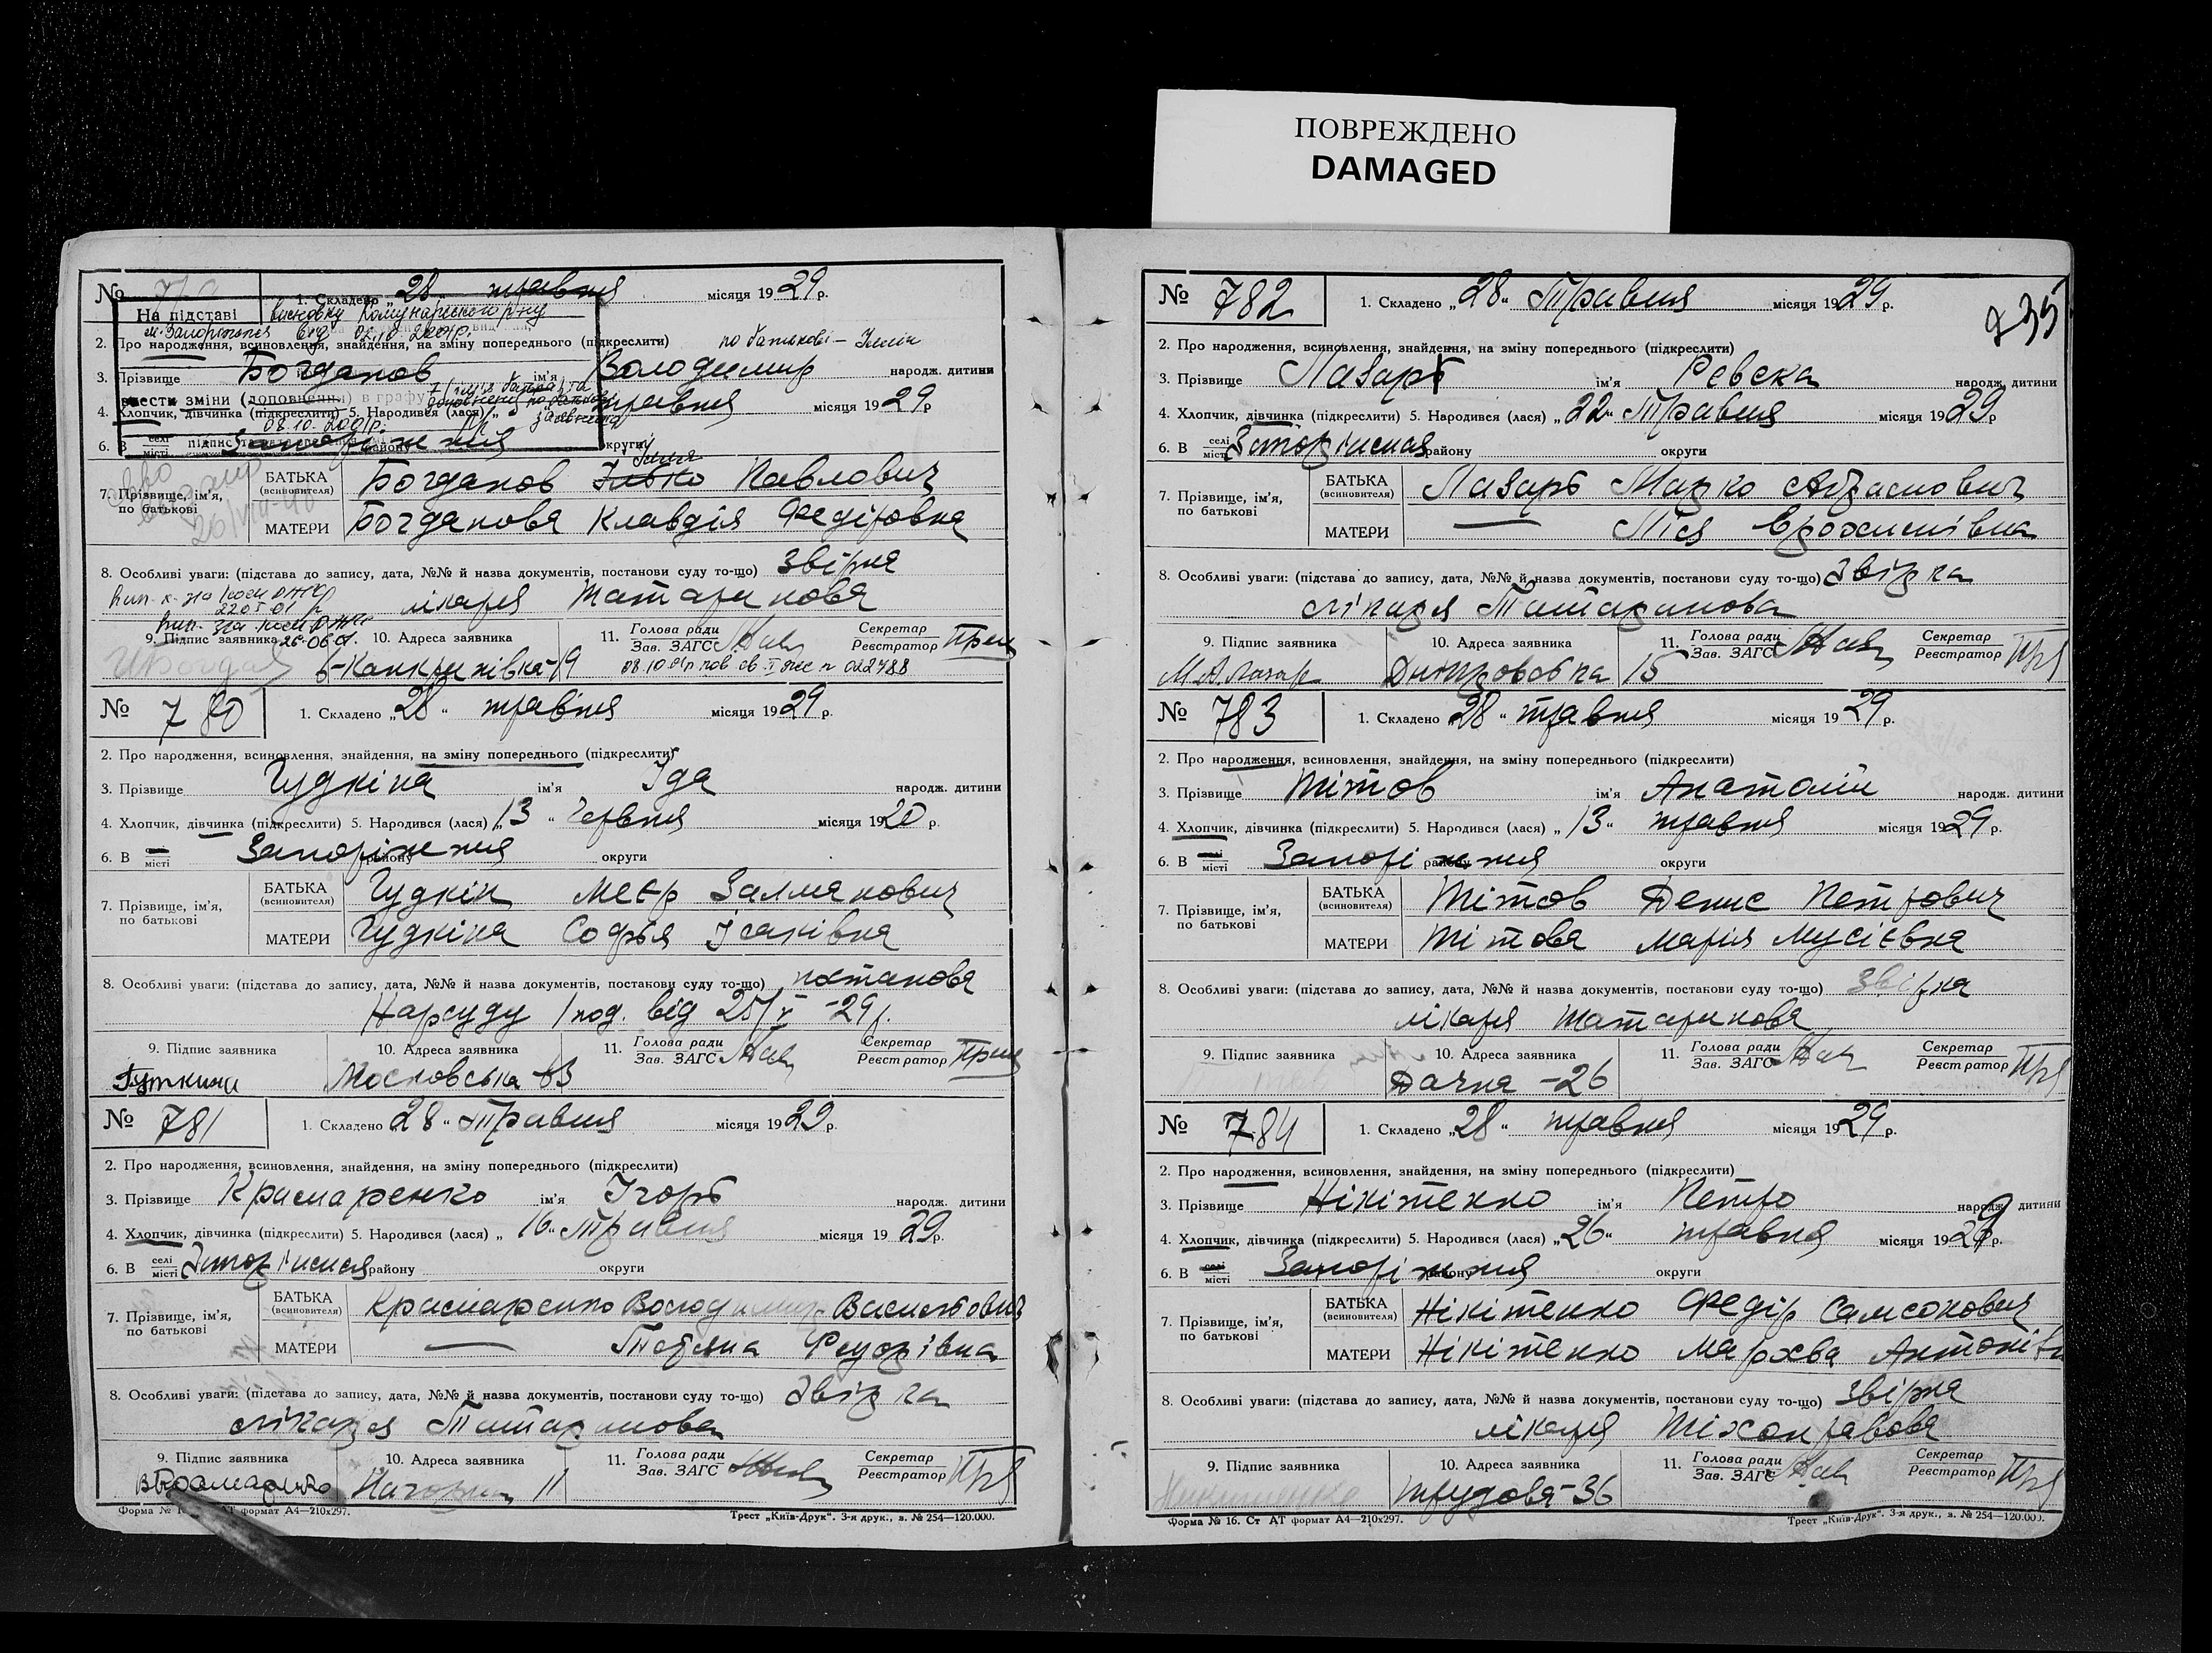 ПОВРЕЖДЕНО
DAMAGED
№
1. Складено „28“ травня місяця 1929 р.
На підставі висновку Комунарського р/ну
м. Запоріжжя від 02.10.2001р.
2. Про народження, всиновлення, знайдення, на зміну попереднього (підкреслити) по батькові – Ілліч
3. Прізвище Богданов ім'я Володимир народж. дитини
внести зміни (доповнення) в графу
4. Хлопчик, дівчинка (підкреслити) 5. Народився (лася) „ травня місяця 1929 р
08.10.2001р.
6. В селі місті Запоріжжя району округи
7. Прізвище, ім'я, по батькові
БАТЬКА (всиновителя) Богданов Ілько Ілля Павлович
МАТЕРИ Богданова Клавдія Федорівна
8. Особливі уваги: (підстава до запису, дата, №№ й назва документів, постанови суду то-що) Звірка
лікаря Татаринова
9. Підпис заявника 26-06 10. Адреса заявника 11. Голова ради Зав. ЗАГС Секретар Реєстратор
б-Канкринівка-19 08.10.01р пов. св. 022788
№ 780
1. Складено „28“ травня місяця 1929 р.
2. Про народження, всиновлення, знайдення, на зміну попереднього (підкреслити)
3. Прізвище Гудкіна ім'я Іда народж. дитини
4. Хлопчик, дівчинка (підкреслити) 5. Народився (лася) „13“ Червня місяця 1920 р.
6. В місті Запоріжжя району округи
7. Прізвище, ім'я, по батькові
БАТЬКА (всиновителя) Гудкін Меєр Залманович
МАТЕРИ Гудкіна Софья Ісаківна
8. Особливі уваги: (підстава до запису, дата, №№ й назва документів, постанови суду то-що) постанова
Нарсуду 1 під. від 25/V-29 р.
9. Підпис заявника 10. Адреса заявника 11. Голова ради Зав. ЗАГС Секретар Реєстратор
Московська-63
№ 781
1. Складено „28“ Травня місяця 1929 р.
2. Про народження, всиновлення, знайдення, на зміну попереднього (підкреслити)
3. Прізвище Крамаренко ім'я Ігорь народж. дитини
4. Хлопчик, дівчинка (підкреслити) 5. Народився (лася) „16“ Травня місяця 1929 р.
6. В селі місті Запоріжжя району округи
7. Прізвище, ім'я, по батькові
БАТЬКА (всиновителя) Крамаренко Володимир Васильович
МАТЕРИ — Тетяна Федорівна
8. Особливі уваги: (підстава до запису, дата, №№ й назва документів, постанови суду то-що) Звірка
лікаря Татаринова
9. Підпис заявника 10. Адреса заявника 11. Голова ради Зав. ЗАГС Секретар Реєстратор
В Крамаренко Нагорна 11
Форма № АТ формат А4—210х297. Трест „Київ-Друк“. 3-я друк., з. № 254—120.000.
235
№ 782
1. Складено „28“ Травня місяця 1929 р.
2. Про народження, всиновлення, знайдення, на зміну попереднього (підкреслити)
3. Прізвище Лазарь ім'я Ревека народж. дитини
4. Хлопчик, дівчинка (підкреслити) 5. Народився (лася) „22“ Травня місяця 1929 р
6. В селі місті Запоріжжя району округи
7. Прізвище, ім'я, по батькові
БАТЬКА (всиновителя) Лазарь Марко Абрамович
МАТЕРИ — Ліся Єрохимівна
8. Особливі уваги: (підстава до запису, дата, №№ й назва документів, постанови суду то-що) Звірка
лікаря Татаринова
9. Підпис заявника 10. Адреса заявника 11. Голова ради Зав. ЗАГС Секретар Реєстратор
М.А.Лазарь Дніпровска 15
№ 783
1. Складено „28“ травня місяця 1929 р.
2. Про народження, всиновлення, знайдення, на зміну попереднього (підкреслити)
3. Прізвище Тітов ім'я Анатолій народж. дитини
4. Хлопчик, дівчинка (підкреслити) 5. Народився (лася) „13“ травня місяця 1929 р.
6. В місті Запоріжжя району округи
7. Прізвище, ім'я, по батькові
БАТЬКА (всиновителя) Тітов Денис Петрович
МАТЕРИ Тітова Марія Мусієвна
8. Особливі уваги: (підстава до запису, дата, №№ й назва документів, постанови суду то-що) Звірка
лікаря Татаринова
9. Підпис заявника 10. Адреса заявника 11. Голова ради Зав. ЗАГС Секретар Реєстратор
Дачна-26
№ 784
1. Складено „28“ травня місяця 1929 р.
2. Про народження, всиновлення, знайдення, на зміну попереднього (підкреслити)
3. Прізвище Нікітенко ім'я Петро народж. дитини
4. Хлопчик, дівчинка (підкреслити) 5. Народився (лася) „26“ травня місяця 1929 р.
6. В селі місті Запоріжжя району округи
7. Прізвище, ім'я, по батькові
БАТЬКА (всиновителя) Нікітенко Федір Самсонович
МАТЕРИ Нікітенко Мархва Антонівн
8. Особливі уваги: (підстава до запису, дата, №№ й назва документів, постанови суду то-що) Звірка
лікаря Тіхонравова
9. Підпис заявника 10. Адреса заявника 11. Голова ради Зав. ЗАГС Секретар Реєстратор
Никитенко Трудова-36
Форма № 16. Ст АТ формат А4—210х297. Трест „Київ-Друк“. 3-я друк., з. № 254—120.000.